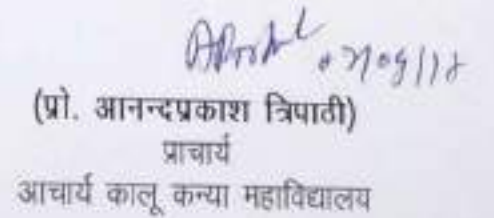 (प्रो. आनन्दप्रकाश त्रिपाठी)
प्राचार्य
आचार्य कालू कन्या महाविद्यालय